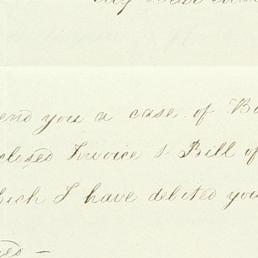 end you a case of B
closed Invoice & Bill of
hich I have debited you